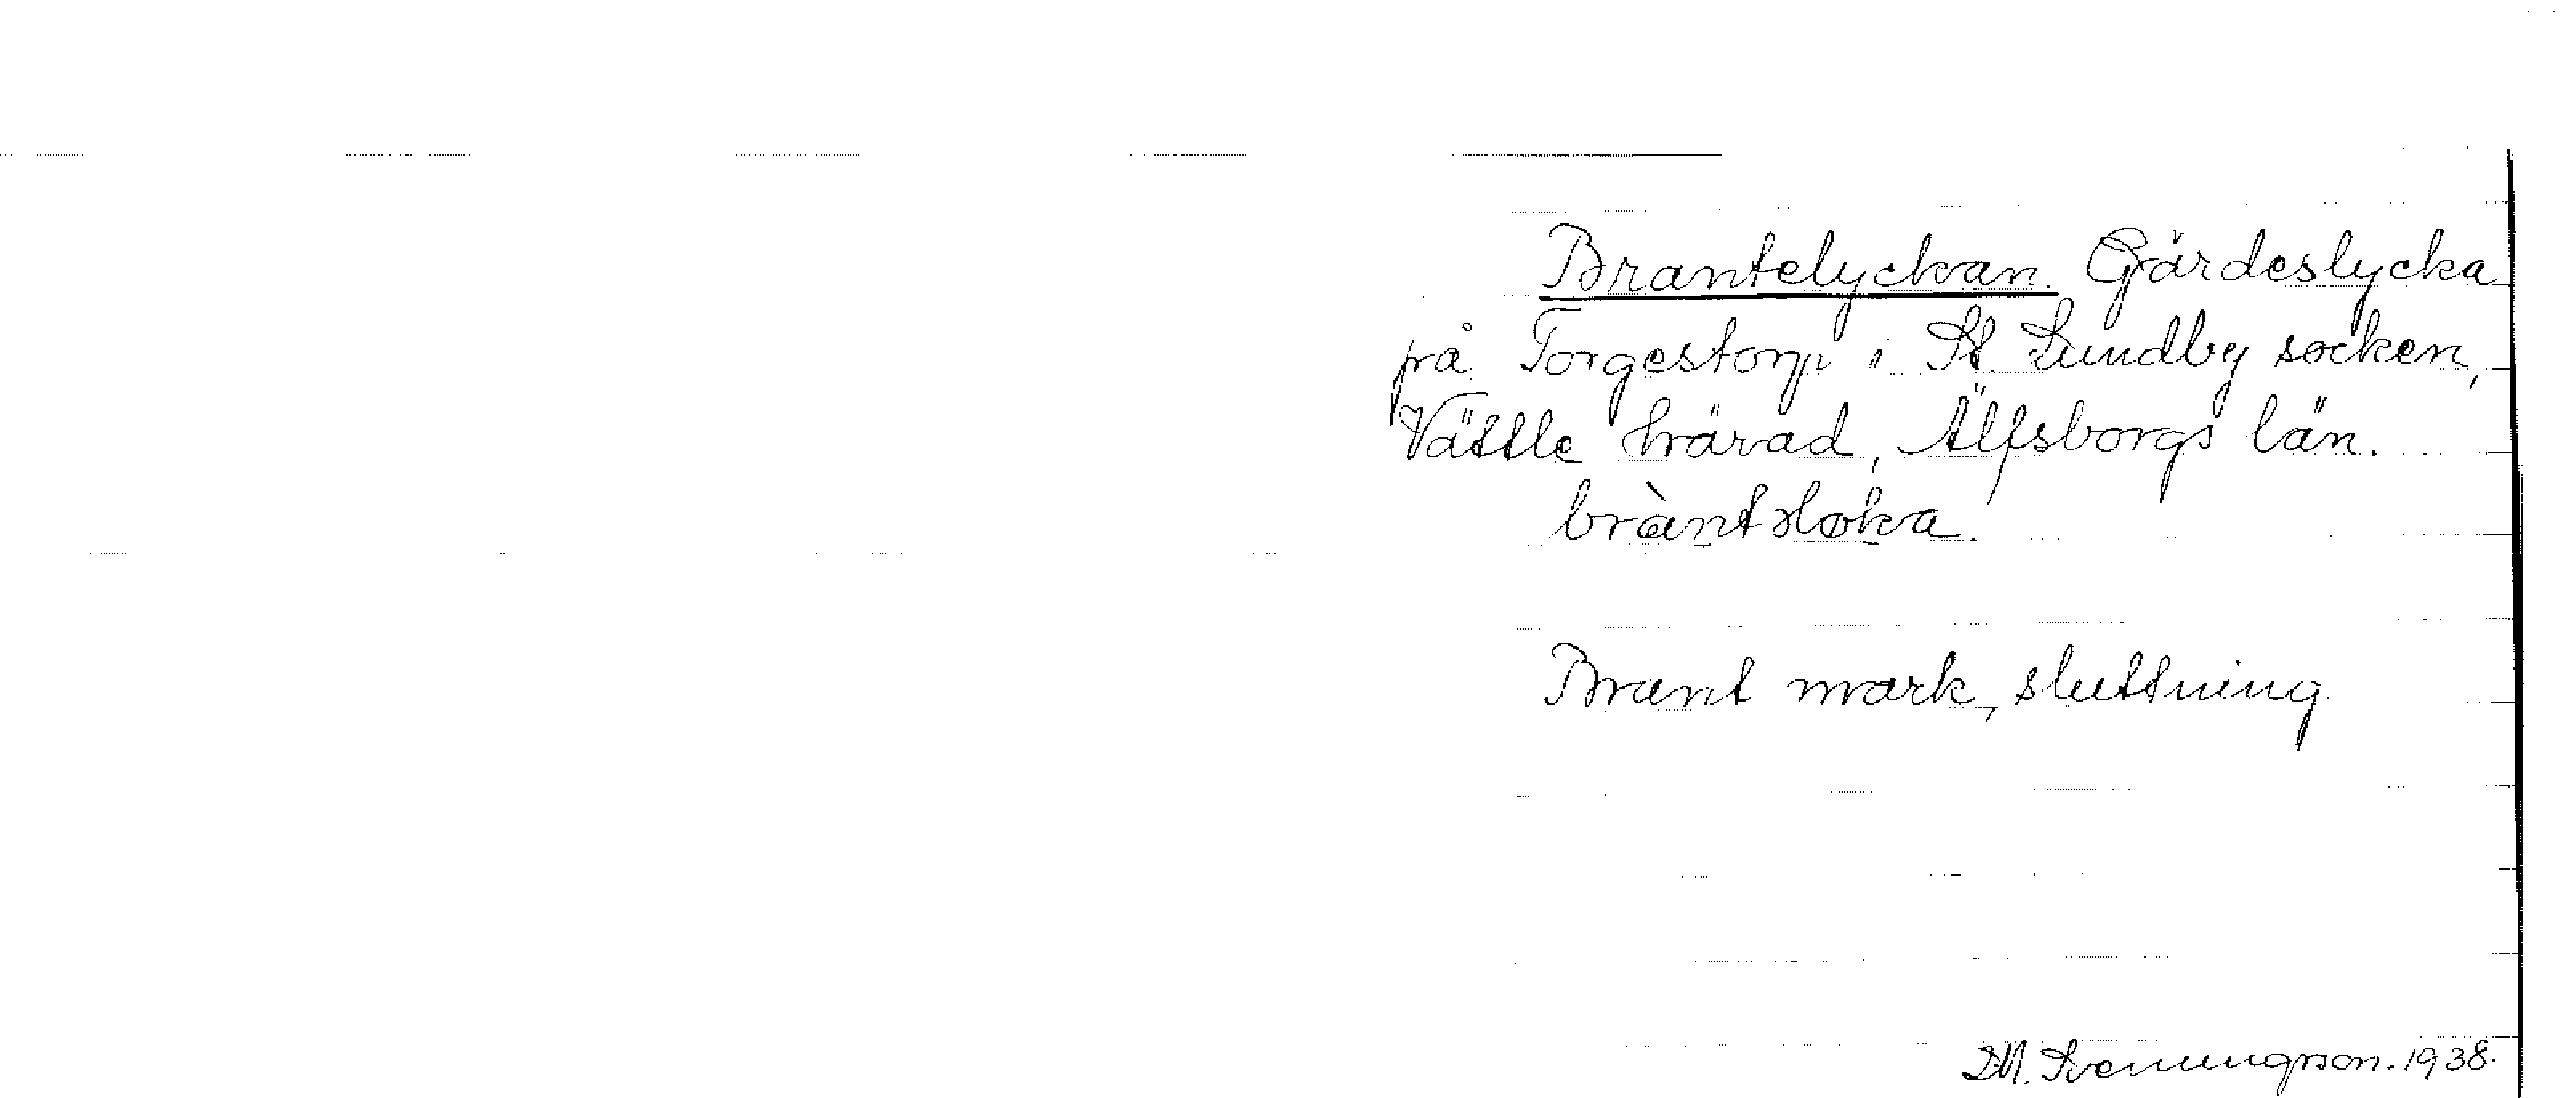 Brantelyckan. Gärdeslycka
på Torgestorp i St. Lundby socken,
Vättle härad, Älfsborgs län.
Brant mark, sluttning.
1938.